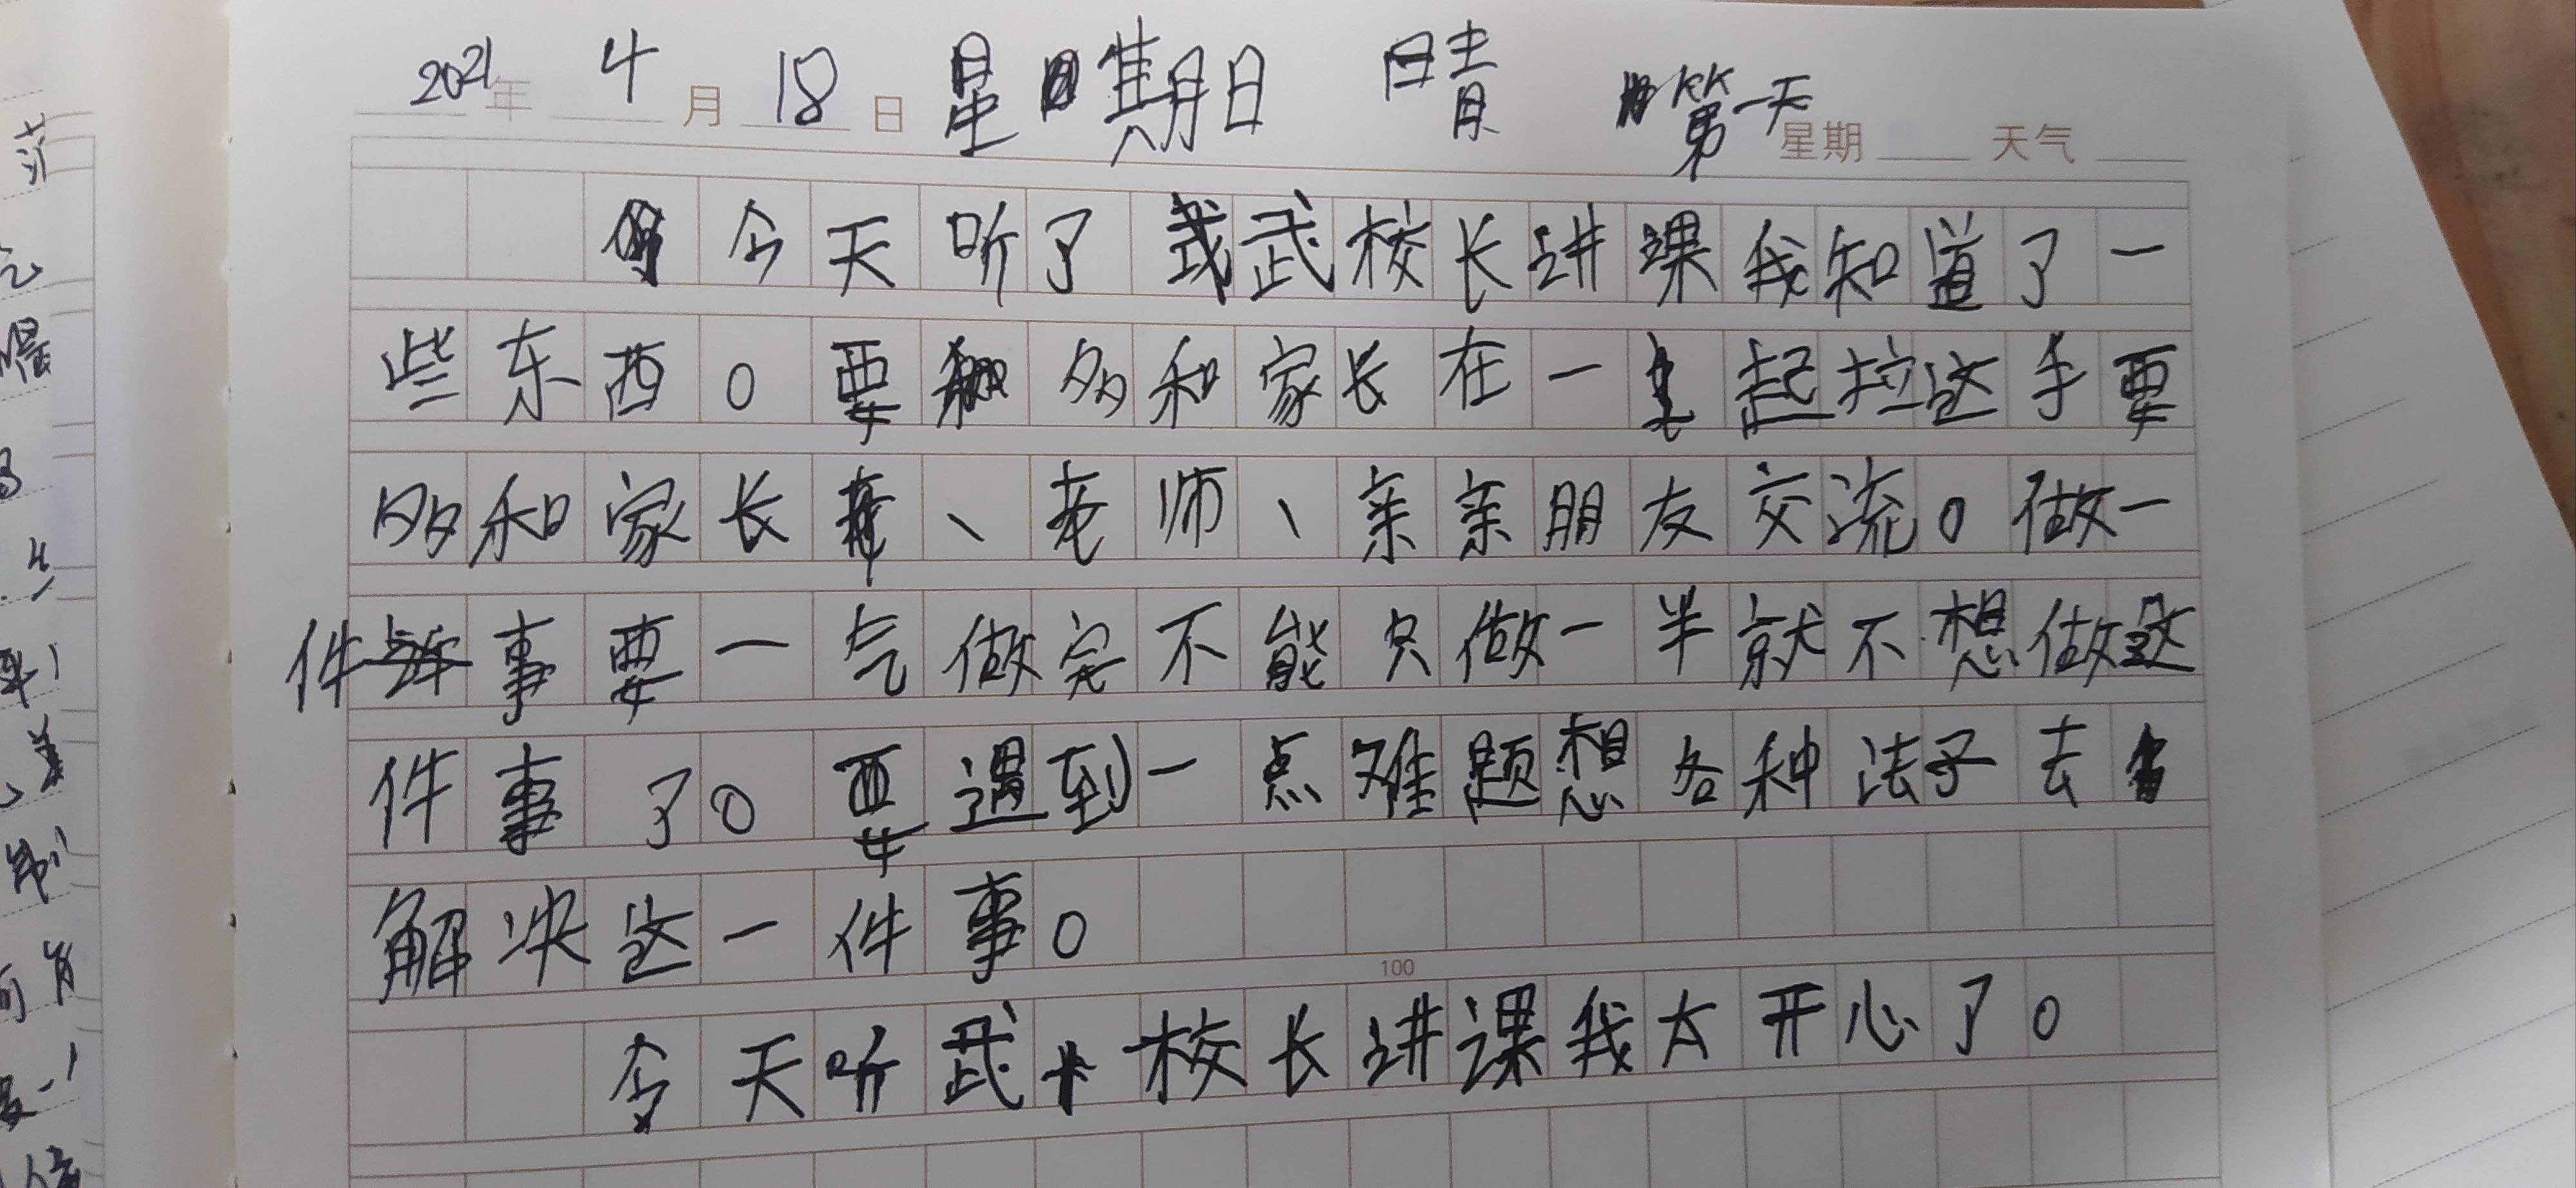 2021年 4月 18日 星期日 晴 第一天
星期 天气
今天听了武校长讲课我知道了一
些东西。要多和家长在一起拉这手要
多和家长、老师、亲亲朋友交流。做一
件事要一气做完不能只做一半就不想做这
件事了。要遇到一点难题想各种法子去
解决这一件事。
100
今天听武校长讲课我太开心了。